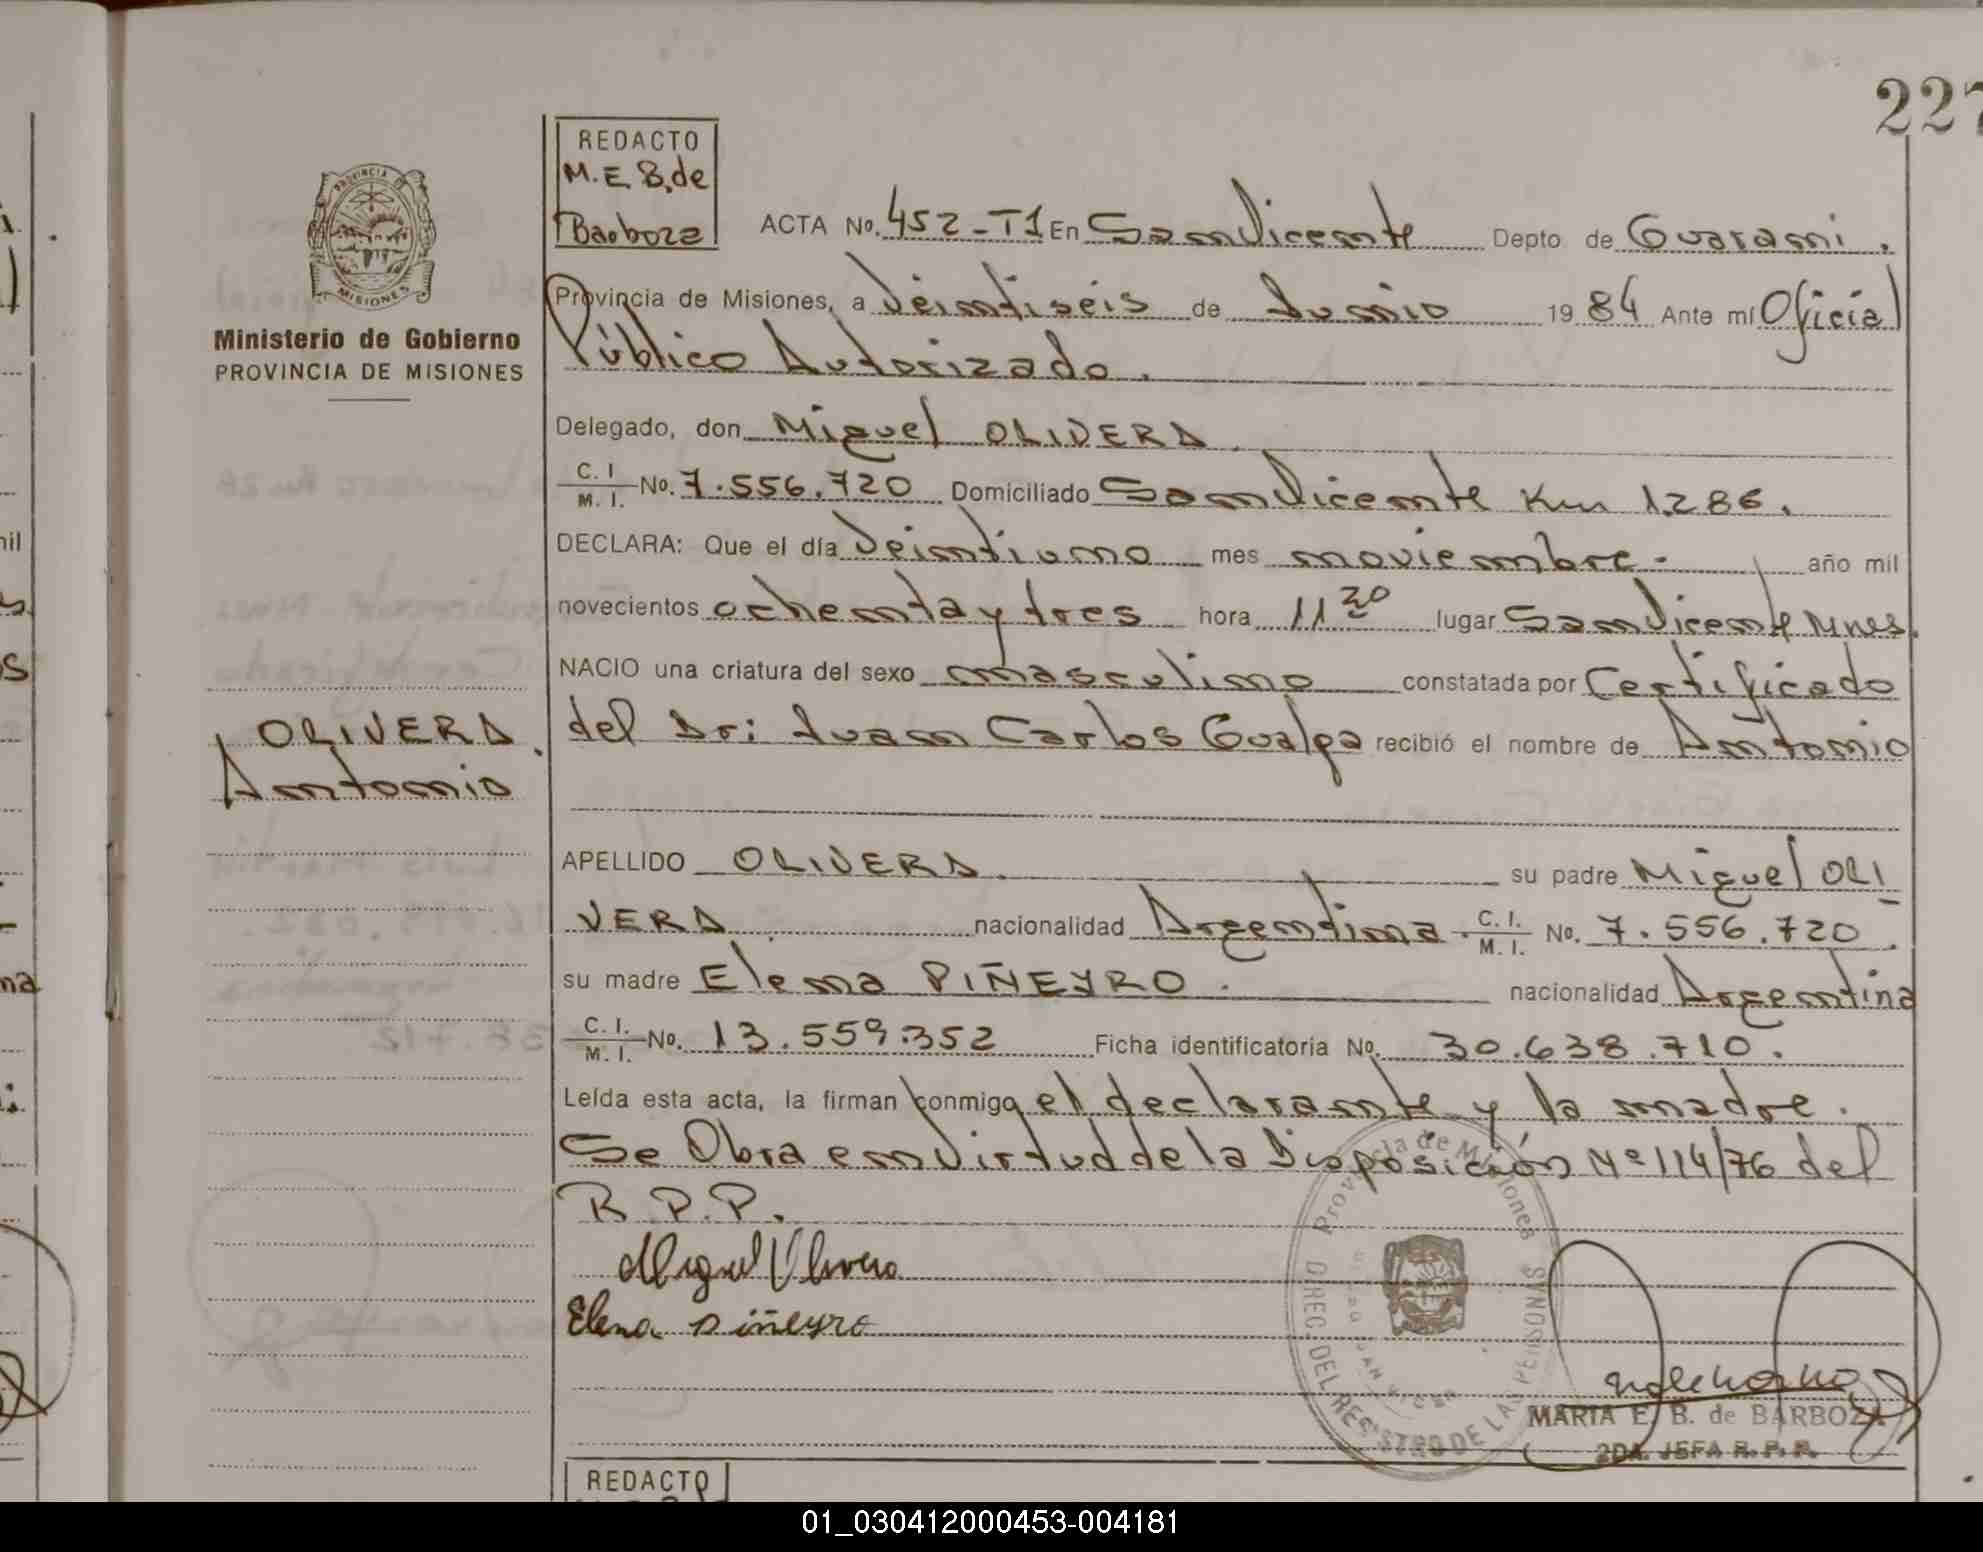 227
REDACTO
M.E.B. de
Barboza
ACTA No. 452-T1 En San Vicente Depto de Guarani.
Provincia de Misiones, a Veintiséis de Junio 1984 Ante mí Oficial
Público Autorizado.
PROVINCIA DE
MISIONES
Ministerio de Gobierno
PROVINCIA DE MISIONES
Delegado, don Miguel OLIVERA
C. I. / M. I. No. 7.556.720 Domiciliado San Vicente Km 1286.
DECLARA: Que el día Veintiuno mes noviembre.- año mil
novecientos ochenta y tres hora 11 20 lugar San Vicente Mnes.
NACIO una criatura del sexo masculino constatada por Certificado
del Dr: Juan Carlos Gualpa recibió el nombre de Antonio
OLIVERA
Antonio
APELLIDO OLIVERA. su padre Miguel OLI
VERA nacionalidad Argentina. C. I. / M. I. No. 7.556.720.
su madre Elena PIÑEYRO. nacionalidad Argentina
C. I. / M. I. No. 13.559.352 Ficha identificatoria No. 30.638.710.
Leída esta acta, la firman conmigo el declarante y la madre.
Se Obra en virtud de la Disposición Nº 114/76 del
R.P.P.
Miguel Olivera
Elena Piñeyro
Provincia de Misiones
DIREC. DEL REGISTRO DE LAS PERSONAS
MARIA E. B. de BARBOZA
2DA. JEFA R. P. P.
REDACTO
01_030412000453-004181